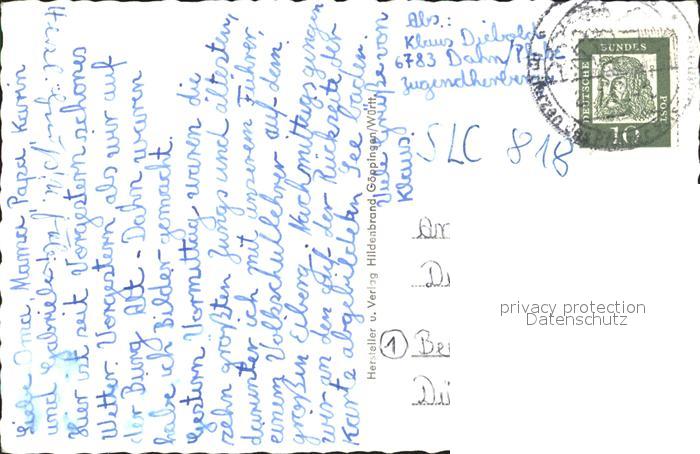 Liebe Omai, Mama, Papa, Karin
und Gabriele!
Hier ist seit Vorgestern schönes
Wetter. Vorgestern als wir auf
der Burg Alt-Dahn waren
habe ich Bilder gemacht.
Gestern Vormittag waren die
zehn größten Jungs und ältesten,
darunter ich mit unserem Führer,
einem Volksschullehrer auf dem
großen Eiberg. Nachmittags gingen
wir in den auf der Rückseite der
Karte abgebildeten See baden.
Viele Grüße von
Klaus
Hersteller u. Verlag Hildenbrand Göppingen/Württ.
Abs.:
Klaus Diebold
6783 Dahn/Pfalz
Jugendherber
SLC 818
DEUTSCHE BUNDES POST
10
An
D
1 Be
Dü
privacy protection
Datenschutz